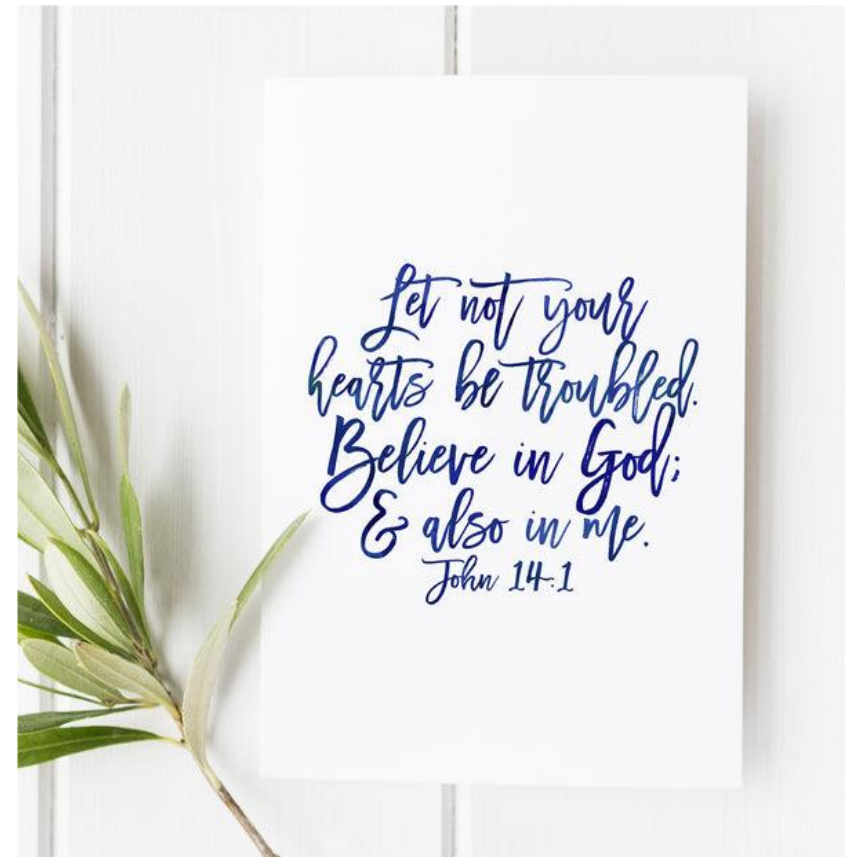 Let not your
hearts be troubled.
Believe in God;
& also in me.
John 14:1